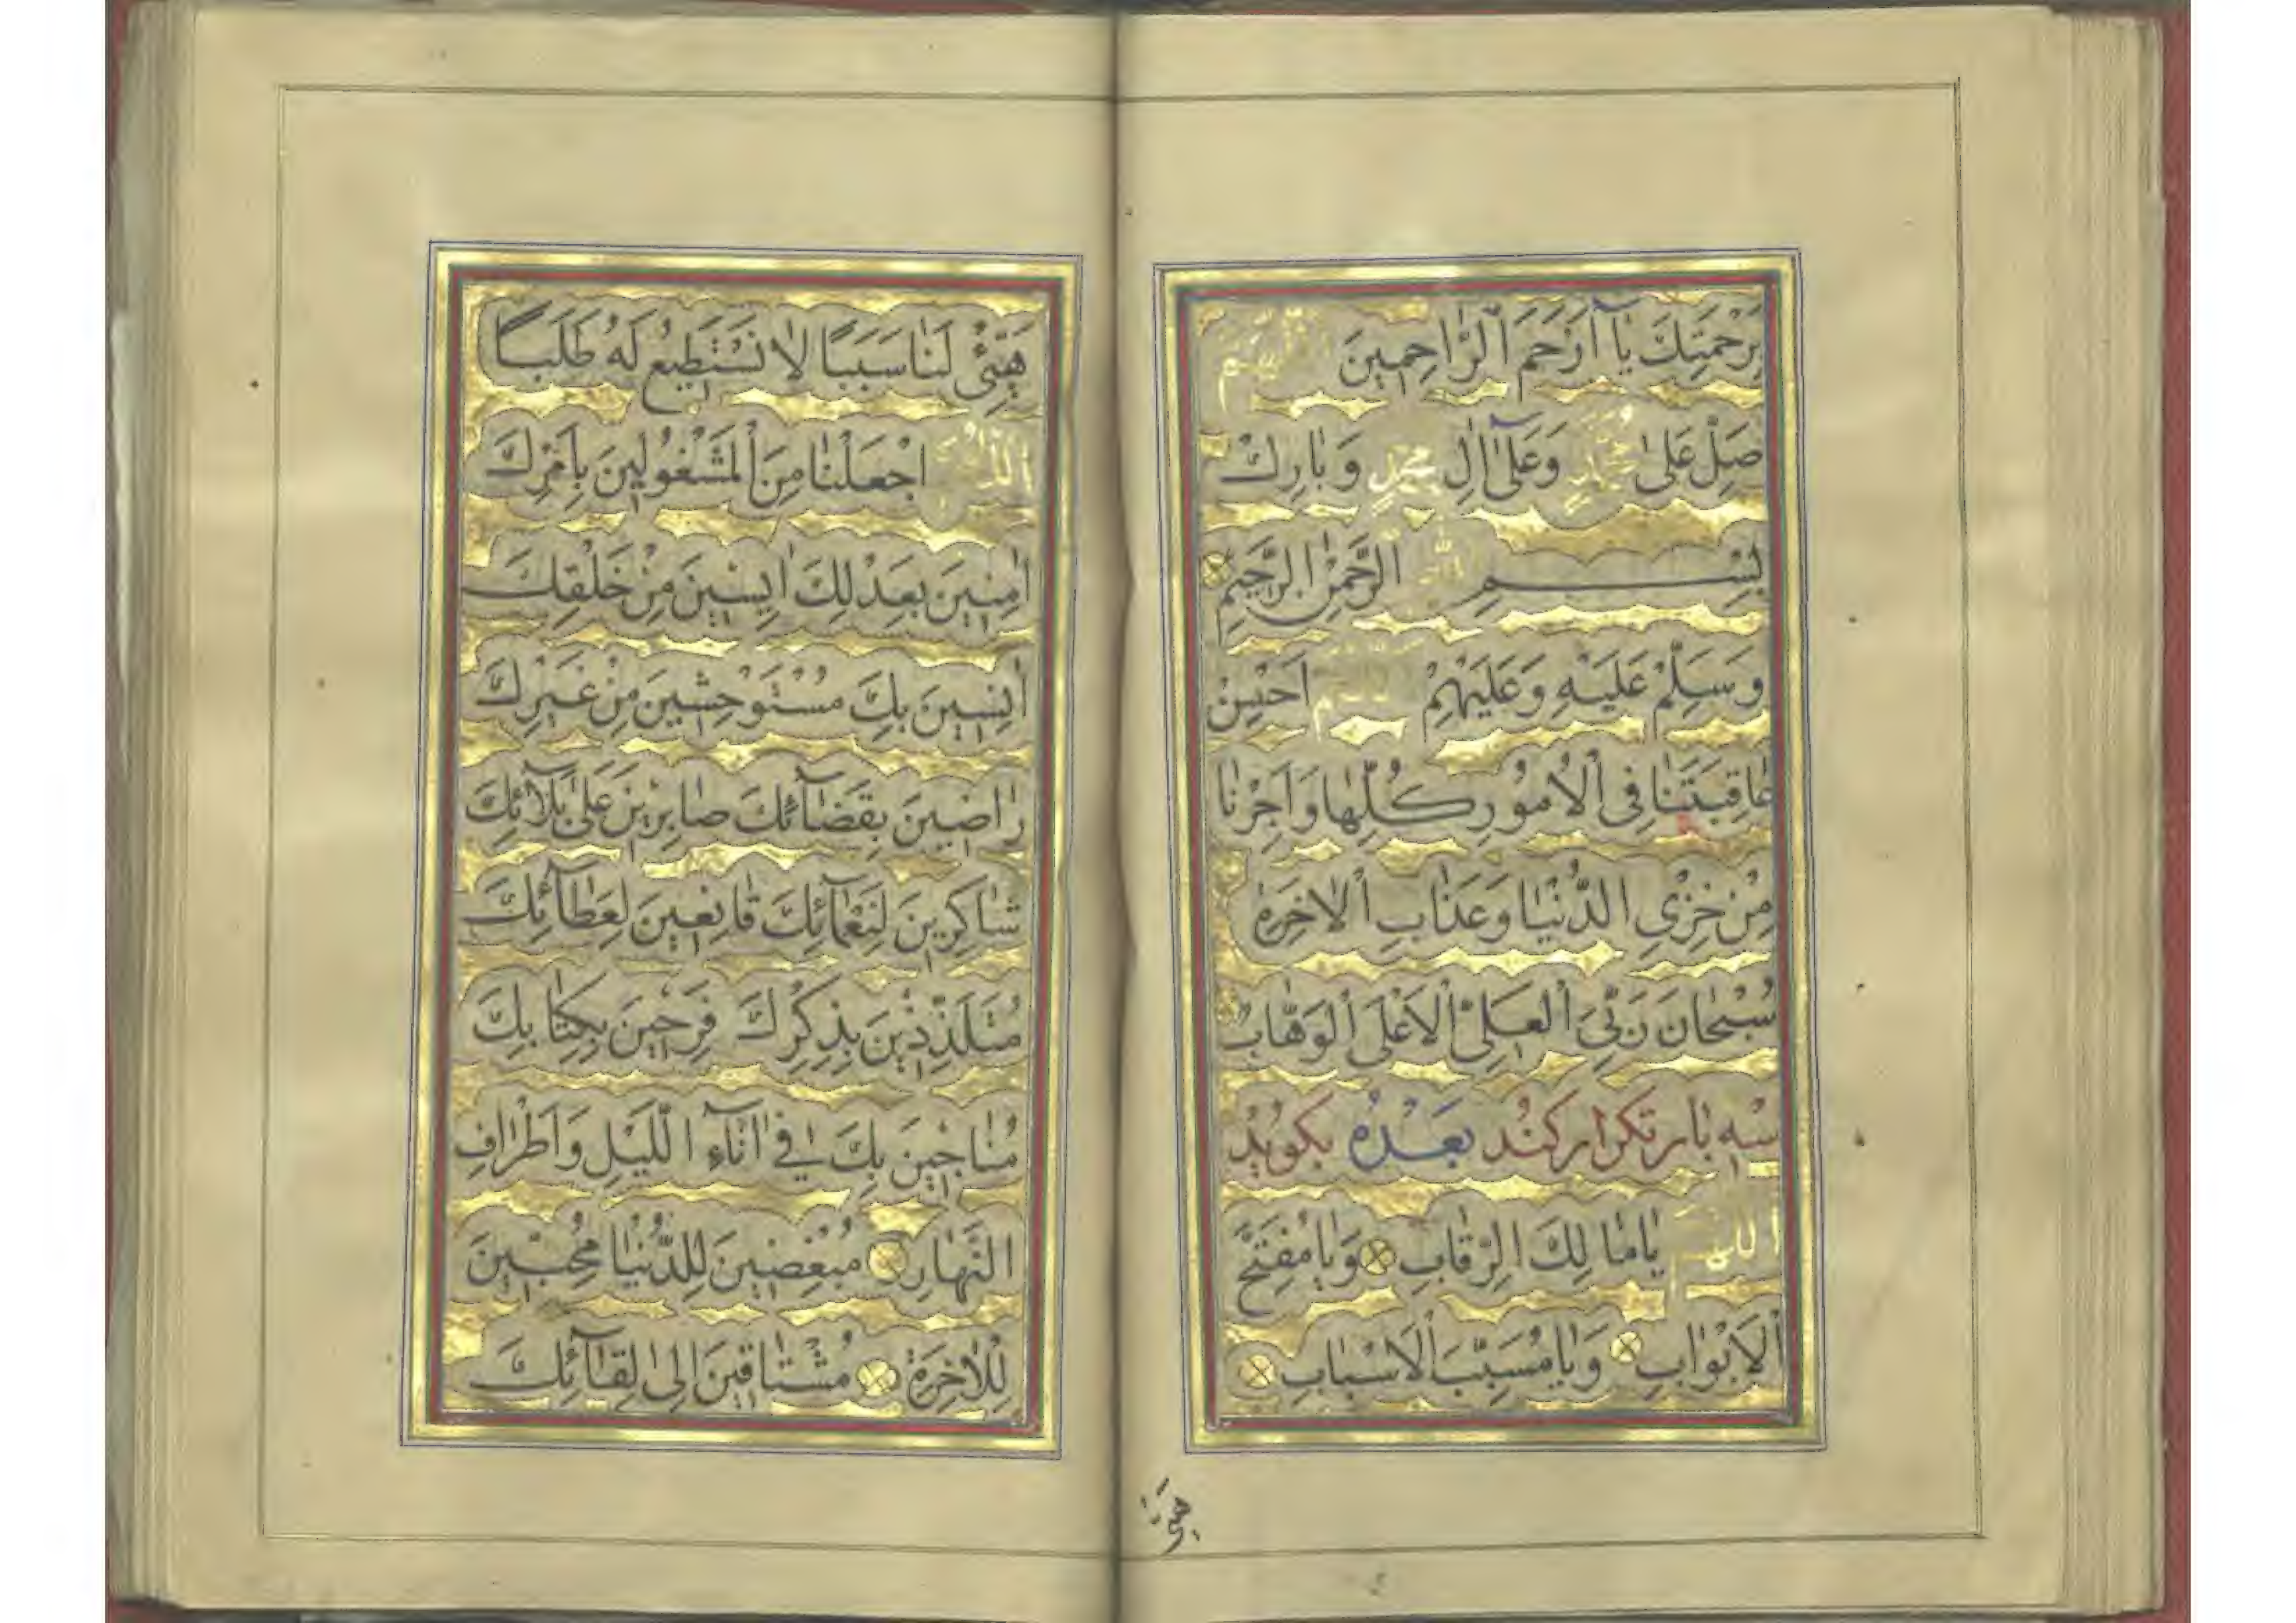 بِرَحْمَتِكَ يَا أَرْحَمَ الرَّاحِمِينَ اللّهم
صَلِّ عَلىٰ مُحَمَّدٍ وَعَلىٰ آلِ مُحَمَّدٍ وَبَارِكْ
بِسْمِ اللّٰهِ الرَّحْمٰنِ الرَّحِيمِ
وَسَلِّمْ عَلَيْهِ وَعَلَيْهِمْ اللّهم اَحْسِنْ
عَاقِبَتَنَا فِى الْاُمُورِ كُلِّهَا وَاَجِرْنَا
مِنْ خِزْىِ الدُّنْيَا وَعَذَابِ الْاٰخِرَةِ
سُبْحَانَ رَبِّىَ الْعَلِىِّ الْاَعْلَى الْوَهَّابِ
سه بار تكرار كند بعده بكويد
اللّهم يَا مَالِكَ الرِّقَابِ وَيَا مُفَتِّحَ
الْاَبْوَابِ وَيَا مُسَبِّبَ الْاَسْبَابِ
هَيِّئْ لَنَا سَبَبًا لَا نَسْتَطِيعُ لَهُ طَلَبًا
اللّهم اجْعَلْنَا مِنَ الْمَشْغُولِينَ بِاَمْرِكَ
اٰمِنِينَ بِعَدْلِكَ اٰيِسِينَ مِنْ خَلْقِكَ
اٰنِسِينَ بِكَ مُسْتَوْحِشِينَ مِنْ غَيْرِكَ
رَاضِينَ بِقَضَآئِكَ صَابِرِينَ عَلىٰ بَلَآئِكَ
شَاكِرِينَ لِنَعْمَآئِكَ قَانِعِينَ لِعَطَآئِكَ
مُتَلَذِّذِينَ بِذِكْرِكَ فَرِحِينَ بِكِتَابِكَ
مُنَاجِينَ بِكَ فِى اٰنَآءِ اللَّيْلِ وَاَطْرَافِ
النَّهَارِ مُبْغِضِينَ لِلدُّنْيَا مُحِبِّينَ
لِلْاٰخِرَةِ مُشْتَاقِينَ اِلىٰ لِقَآئِكَ